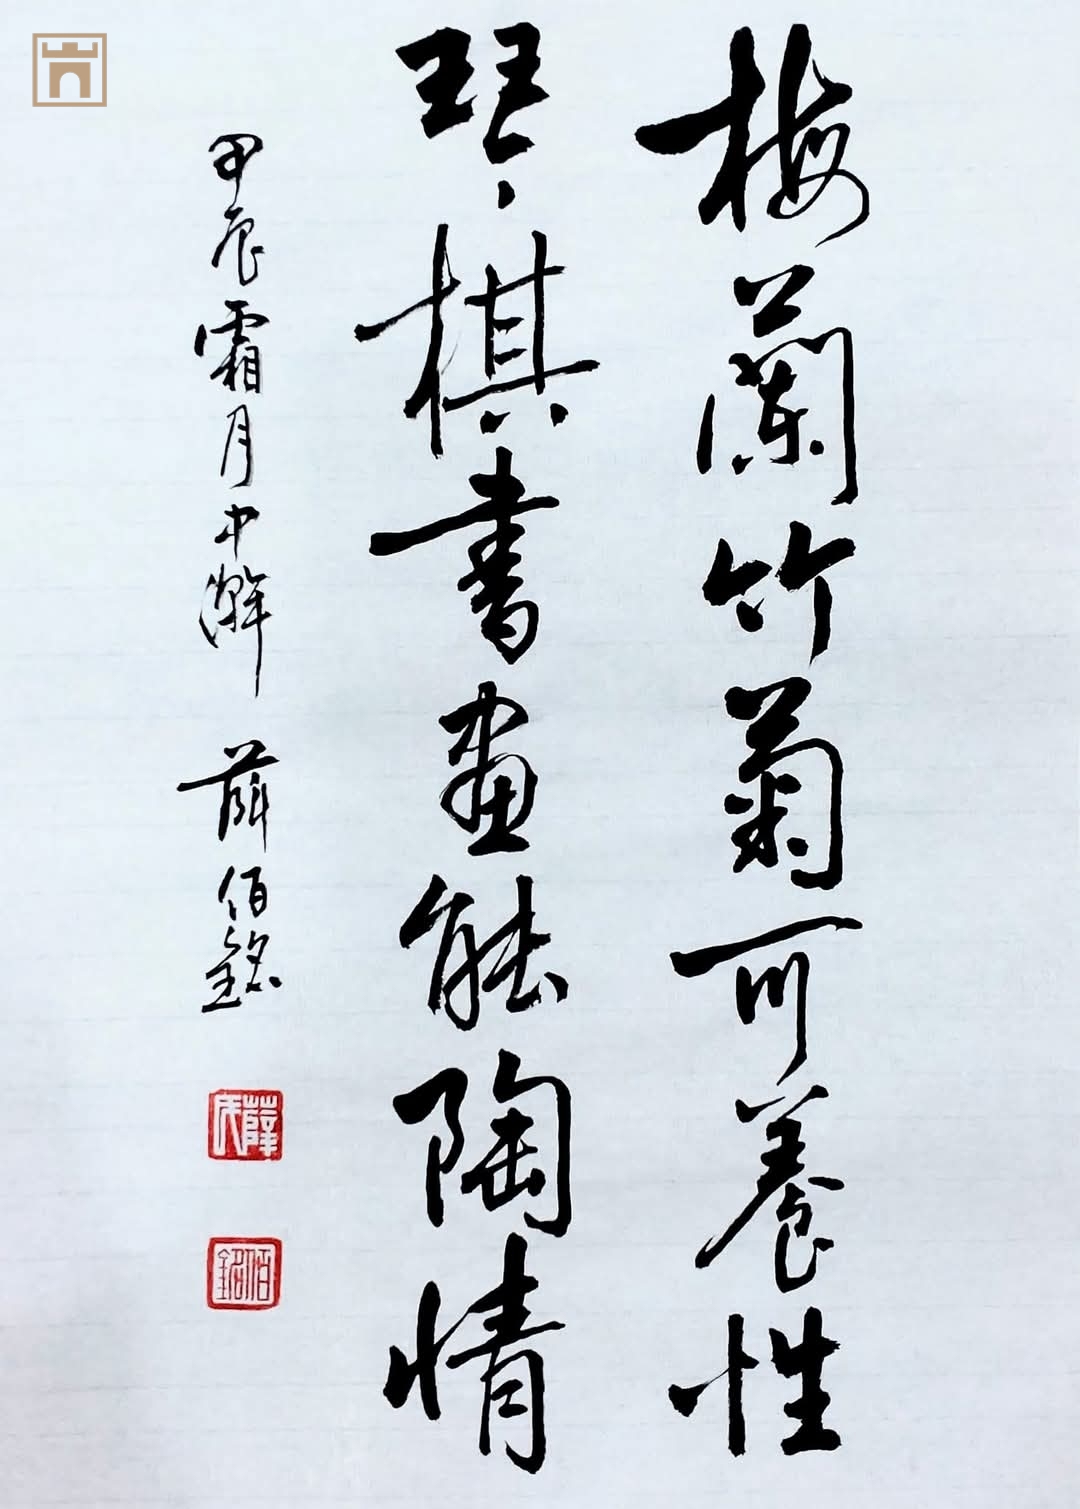 梅蘭竹菊可養性
琴棋書畫能陶情
甲辰霜月中澣 薛伯銘
薛氏
伯銘